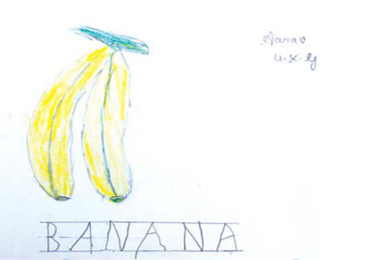 Aarav
U.K.G
BANANA